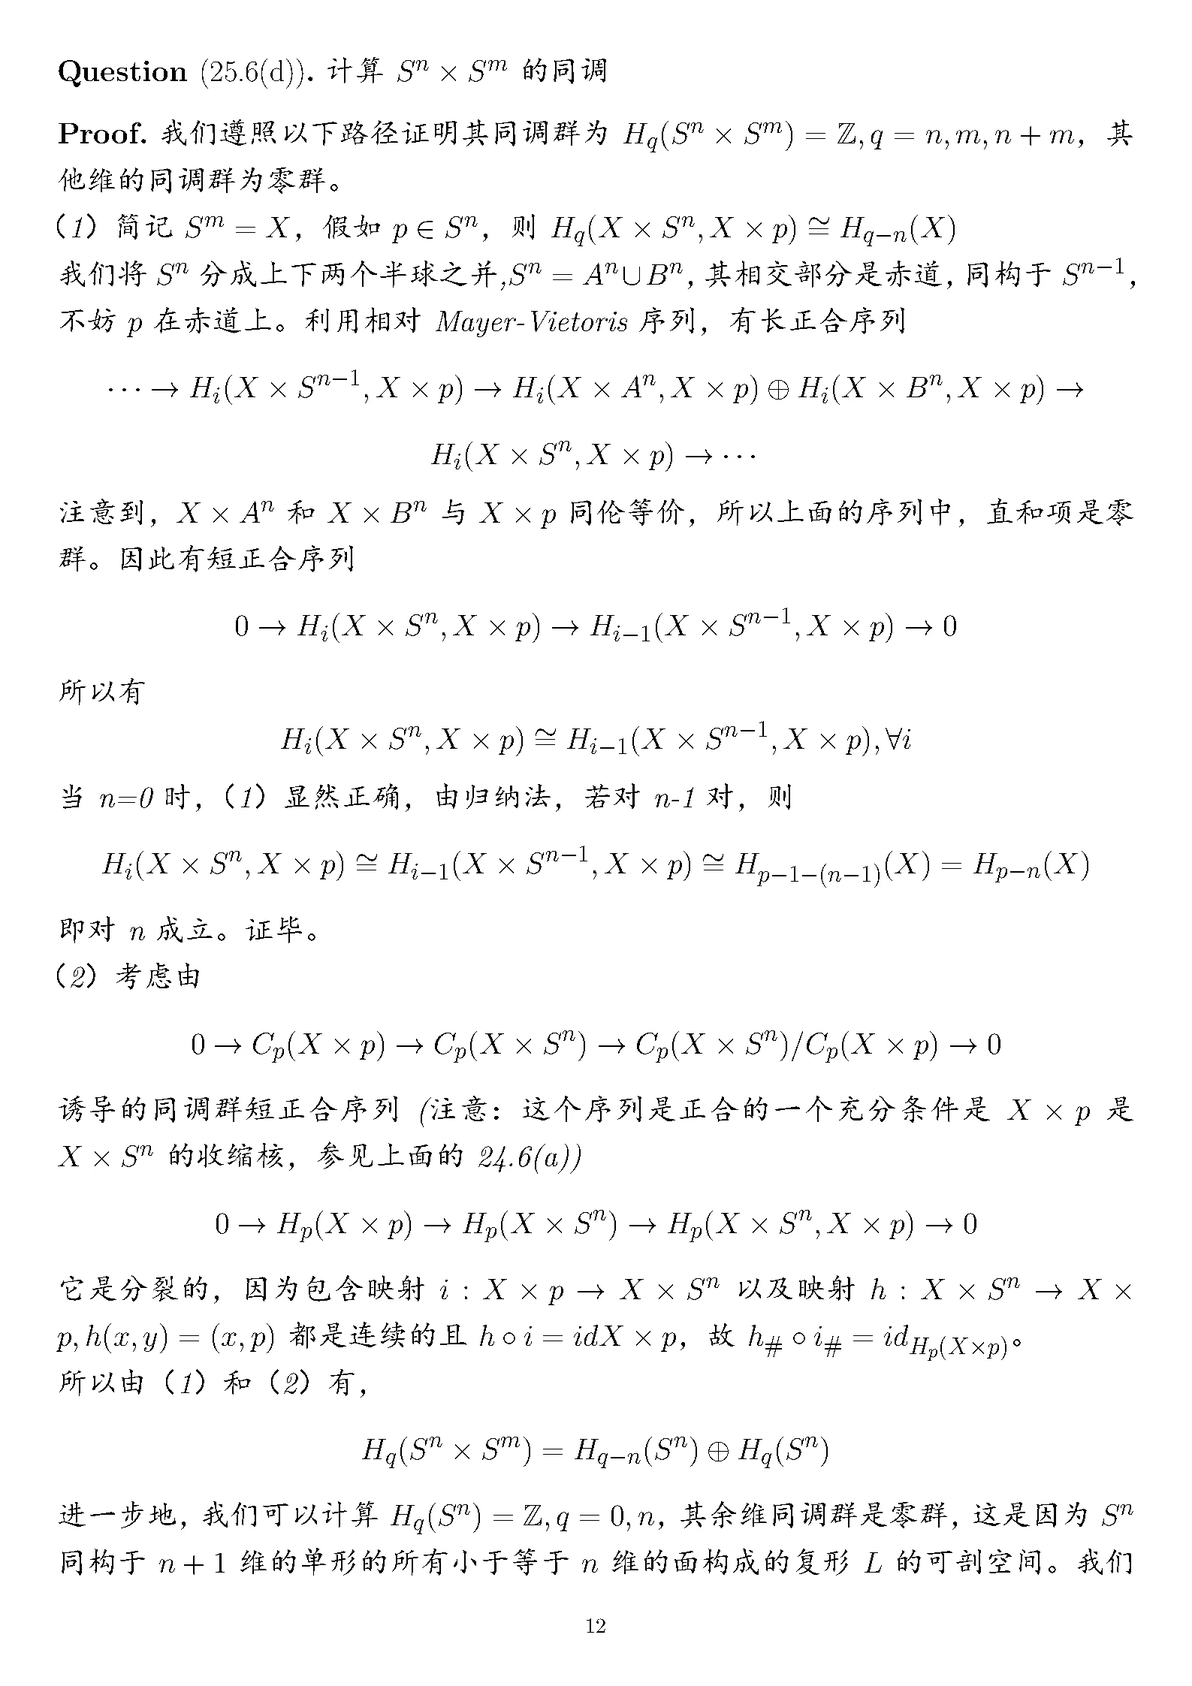 Question (25.6(d)). 计算 Sⁿ × Sᵐ 的同调
Proof. 我们遵照以下路径证明其同调群为 H_q(Sⁿ × Sᵐ) = ℤ, q = n, m, n + m，其
他维的同调群为零群。
（1）简记 Sᵐ = X，假如 p ∈ Sⁿ，则 H_q(X × Sⁿ, X × p) ≅ H_{q−n}(X)
我们将 Sⁿ 分成上下两个半球之并,Sⁿ = Aⁿ∪Bⁿ，其相交部分是赤道，同构于 Sⁿ⁻¹，
不妨 p 在赤道上。利用相对 Mayer-Vietoris 序列，有长正合序列
⋯ → H_i(X × Sⁿ⁻¹, X × p) → H_i(X × Aⁿ, X × p) ⊕ H_i(X × Bⁿ, X × p) →
H_i(X × Sⁿ, X × p) → ⋯
注意到，X × Aⁿ 和 X × Bⁿ 与 X × p 同伦等价，所以上面的序列中，直和项是零
群。因此有短正合序列
0 → H_i(X × Sⁿ, X × p) → H_{i−1}(X × Sⁿ⁻¹, X × p) → 0
所以有
H_i(X × Sⁿ, X × p) ≅ H_{i−1}(X × Sⁿ⁻¹, X × p), ∀i
当 n=0 时，（1）显然正确，由归纳法，若对 n-1 对，则
H_i(X × Sⁿ, X × p) ≅ H_{i−1}(X × Sⁿ⁻¹, X × p) ≅ H_{p−1−(n−1)}(X) = H_{p−n}(X)
即对 n 成立。证毕。
（2）考虑由
0 → C_p(X × p) → C_p(X × Sⁿ) → C_p(X × Sⁿ)/C_p(X × p) → 0
诱导的同调群短正合序列 (注意：这个序列是正合的一个充分条件是 X × p 是
X × Sⁿ 的收缩核，参见上面的 24.6(a))
0 → H_p(X × p) → H_p(X × Sⁿ) → H_p(X × Sⁿ, X × p) → 0
它是分裂的，因为包含映射 i : X × p → X × Sⁿ 以及映射 h : X × Sⁿ → X ×
p, h(x, y) = (x, p) 都是连续的且 h ∘ i = idX × p，故 h_# ∘ i_# = id_{H_p(X×p)}。
所以由（1）和（2）有，
H_q(Sⁿ × Sᵐ) = H_{q−n}(Sⁿ) ⊕ H_q(Sⁿ)
进一步地，我们可以计算 H_q(Sⁿ) = ℤ, q = 0, n，其余维同调群是零群，这是因为 Sⁿ
同构于 n + 1 维的单形的所有小于等于 n 维的面构成的复形 L 的可剖空间。我们
12